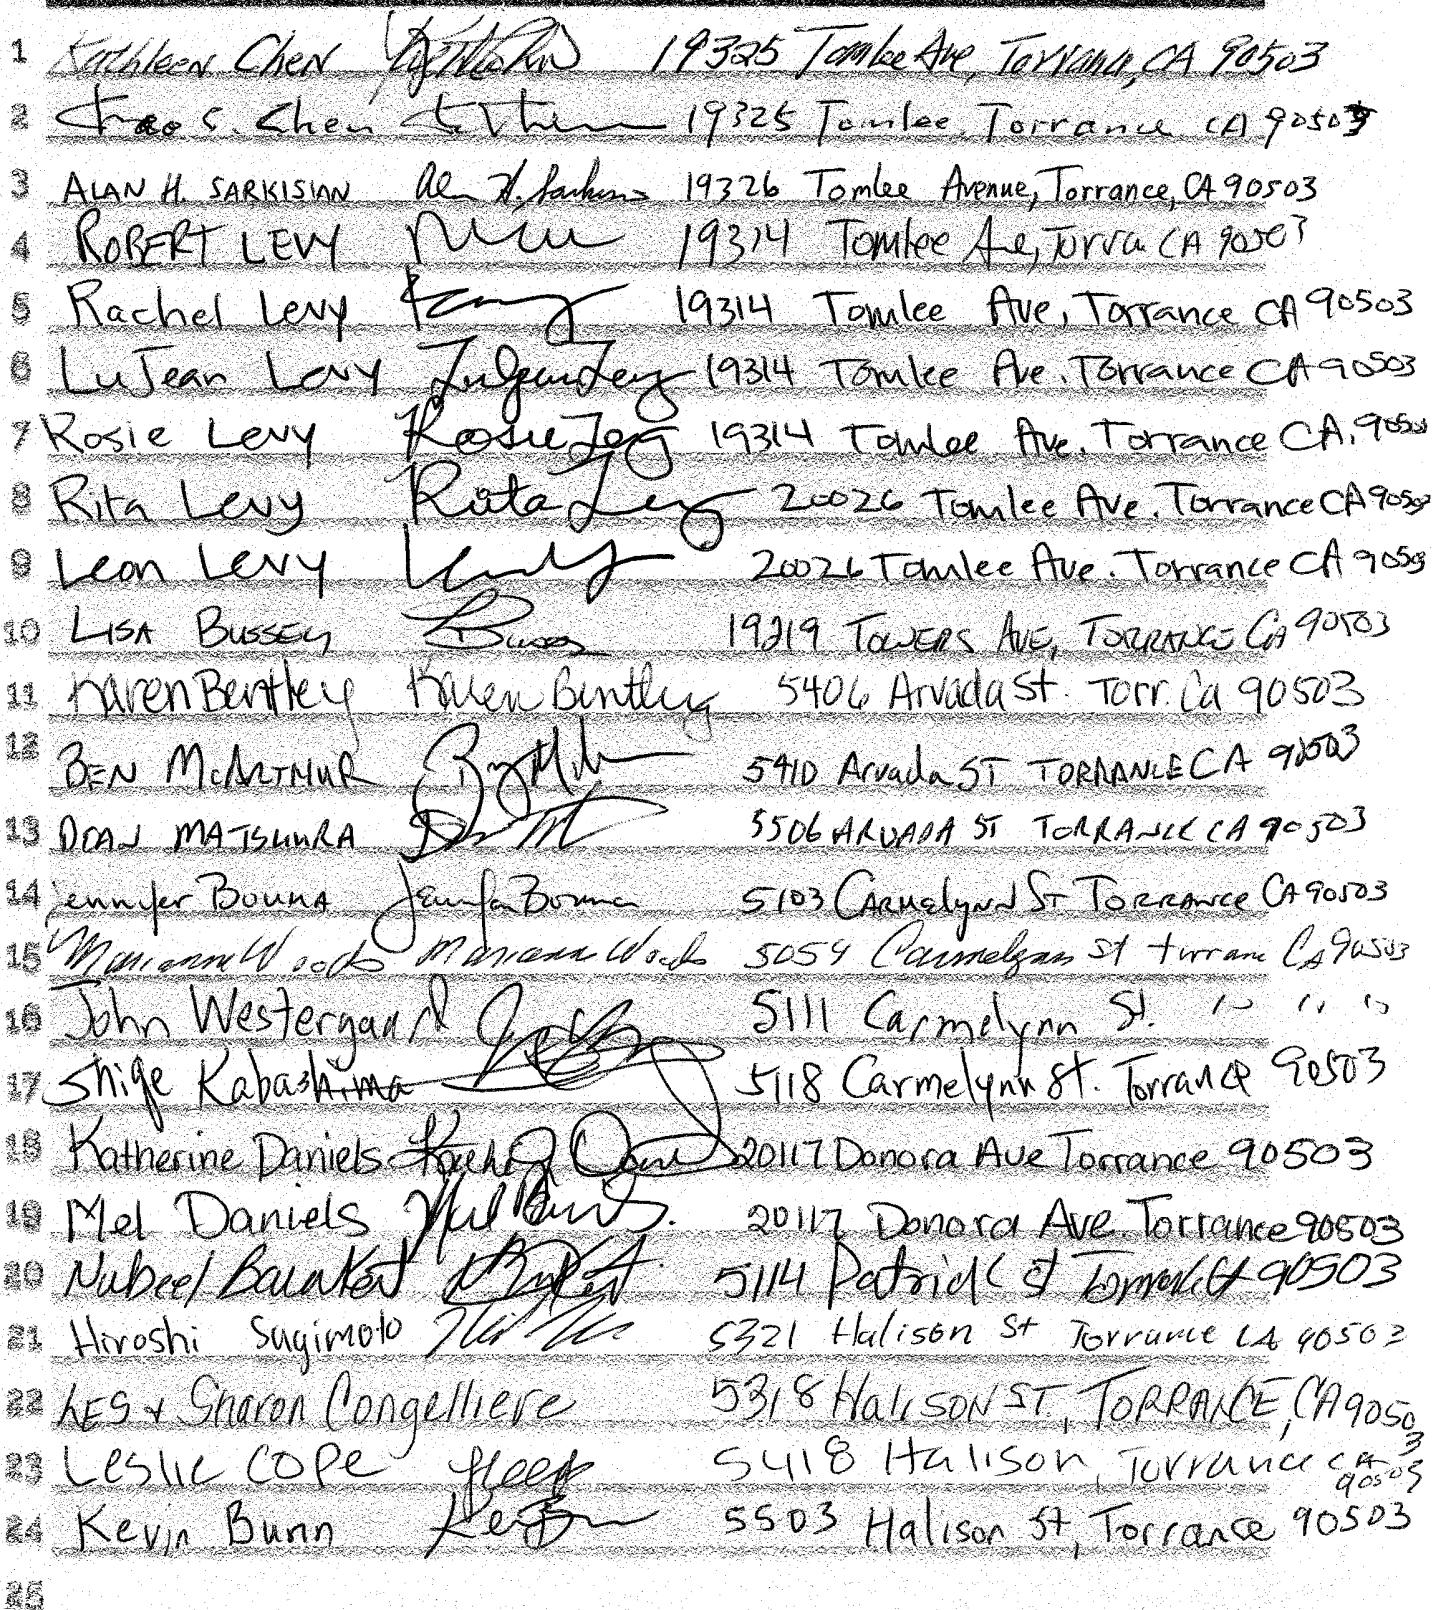 1 Kathleen Chen 19325 Tomlee Ave, Torrance, CA 90503
2 Chao S. Chen 19325 Tomlee, Torrance CA 90503
3 ALAN H. SARKISIAN Alan H. Sarkisian 19326 Tomlee Avenue, Torrance, CA 90503
4 ROBERT LEVY 19314 Tomlee Ave, Torra CA 90503
5 Rachel Levy 19314 Tomlee Ave, Torrance CA 90503
6 LuJean Levy LuJean Levy 19314 Tomlee Ave. Torrance CA 90503
7 Rosie Levy Rosie Levy 19314 Tomlee Ave. Torrance CA. 90503
8 Rita Levy Rita Levy 20026 Tomlee Ave. Torrance CA 90503
9 Leon Levy 20026 Tomlee Ave. Torrance CA 90503
10 LISA BUSSEY 19219 TOWERS AVE, TORRANCE CA 90503
11 Karen Bentley Karen Bentley 5406 Arvada St. Torr. Ca 90503
12 BEN McARTHUR 5410 Arvada ST TORRANCE CA 90503
13 DEAN MATSUURA 5506 ARVADA ST TORRANCE CA 90503
14 Jennifer BOUMA Jennifer Bouma 5103 CARMELYNN ST TORRANCE CA 90503
15 Marianne Woods Marianne Woods 5059 Carmelynn St torrance CA 90503
16 John Westergaard 5111 Carmelynn St. " " "
17 Shige Kabashima 5118 Carmelynn St. Torrance 90503
18 Katherine Daniels 20117 Donora Ave Torrance 90503
19 Mel Daniels Mel Daniels. 20117 Donora Ave. Torrance 90503
20 Nabeel Barakat 5114 Patrick St Torrance CA 90503
21 Hiroshi Sugimoto 5321 Halison St Torrance CA 90503
22 LES & Sharon Congelliere 5318 Halison ST, TORRANCE, CA 90503
23 Leslie Cope 5418 Halison, Torrance CA 90503
24 Kevin Bunn 5503 Halison St, Torrance 90503
25